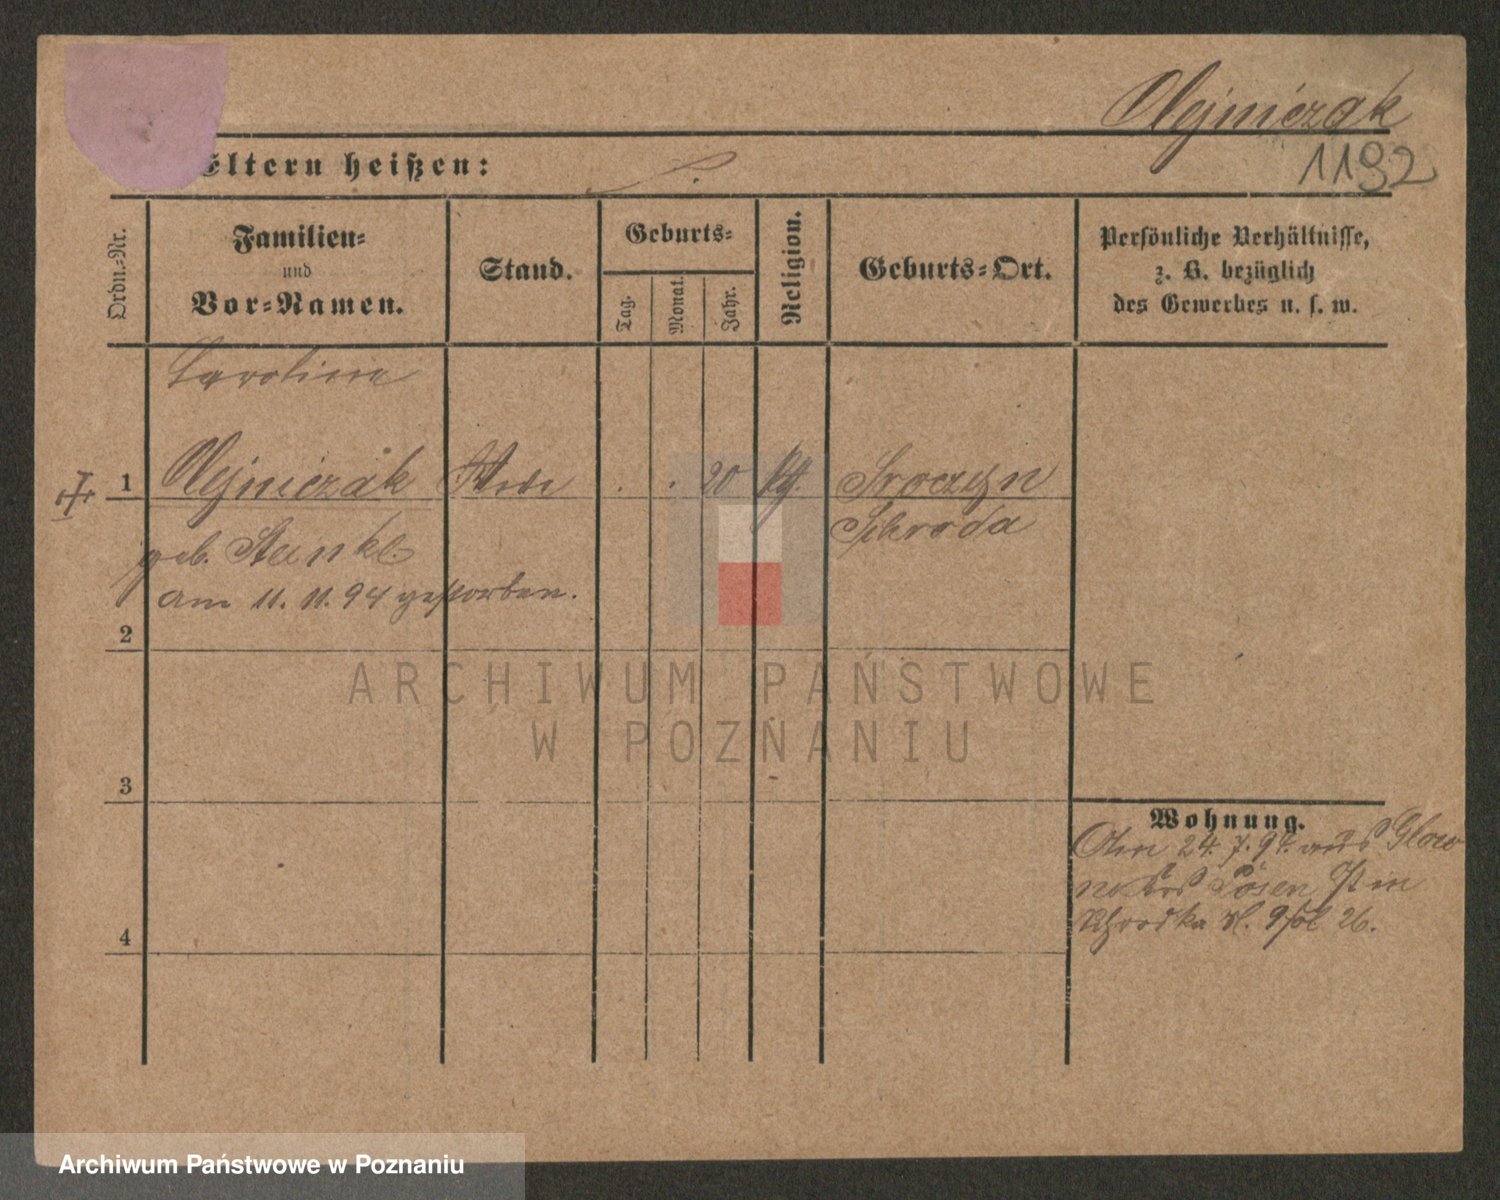 Olejniczak
1192
Eltern heißen:
Ordn.-Nr.
Familien-
und
Vor-Namen.
Stand.
Geburts-
Tag.
Monat.
Jahr.
Religion.
Geburts-Ort.
Persönliche Verhältnisse,
z. B. bezüglich
des Gewerbes u. s. w.
Caroline
1 Olejniczak 20 Sroczyn
geb. Schroda
am 11. 11. 94 gestorben.
2
3
4
Wohnung.
24. 7. 94. aus Glow
no Posen in
Schrodka 26.
ARCHIWUM PAŃSTWOWE
W POZNANIU
Archiwum Państwowe w Poznaniu